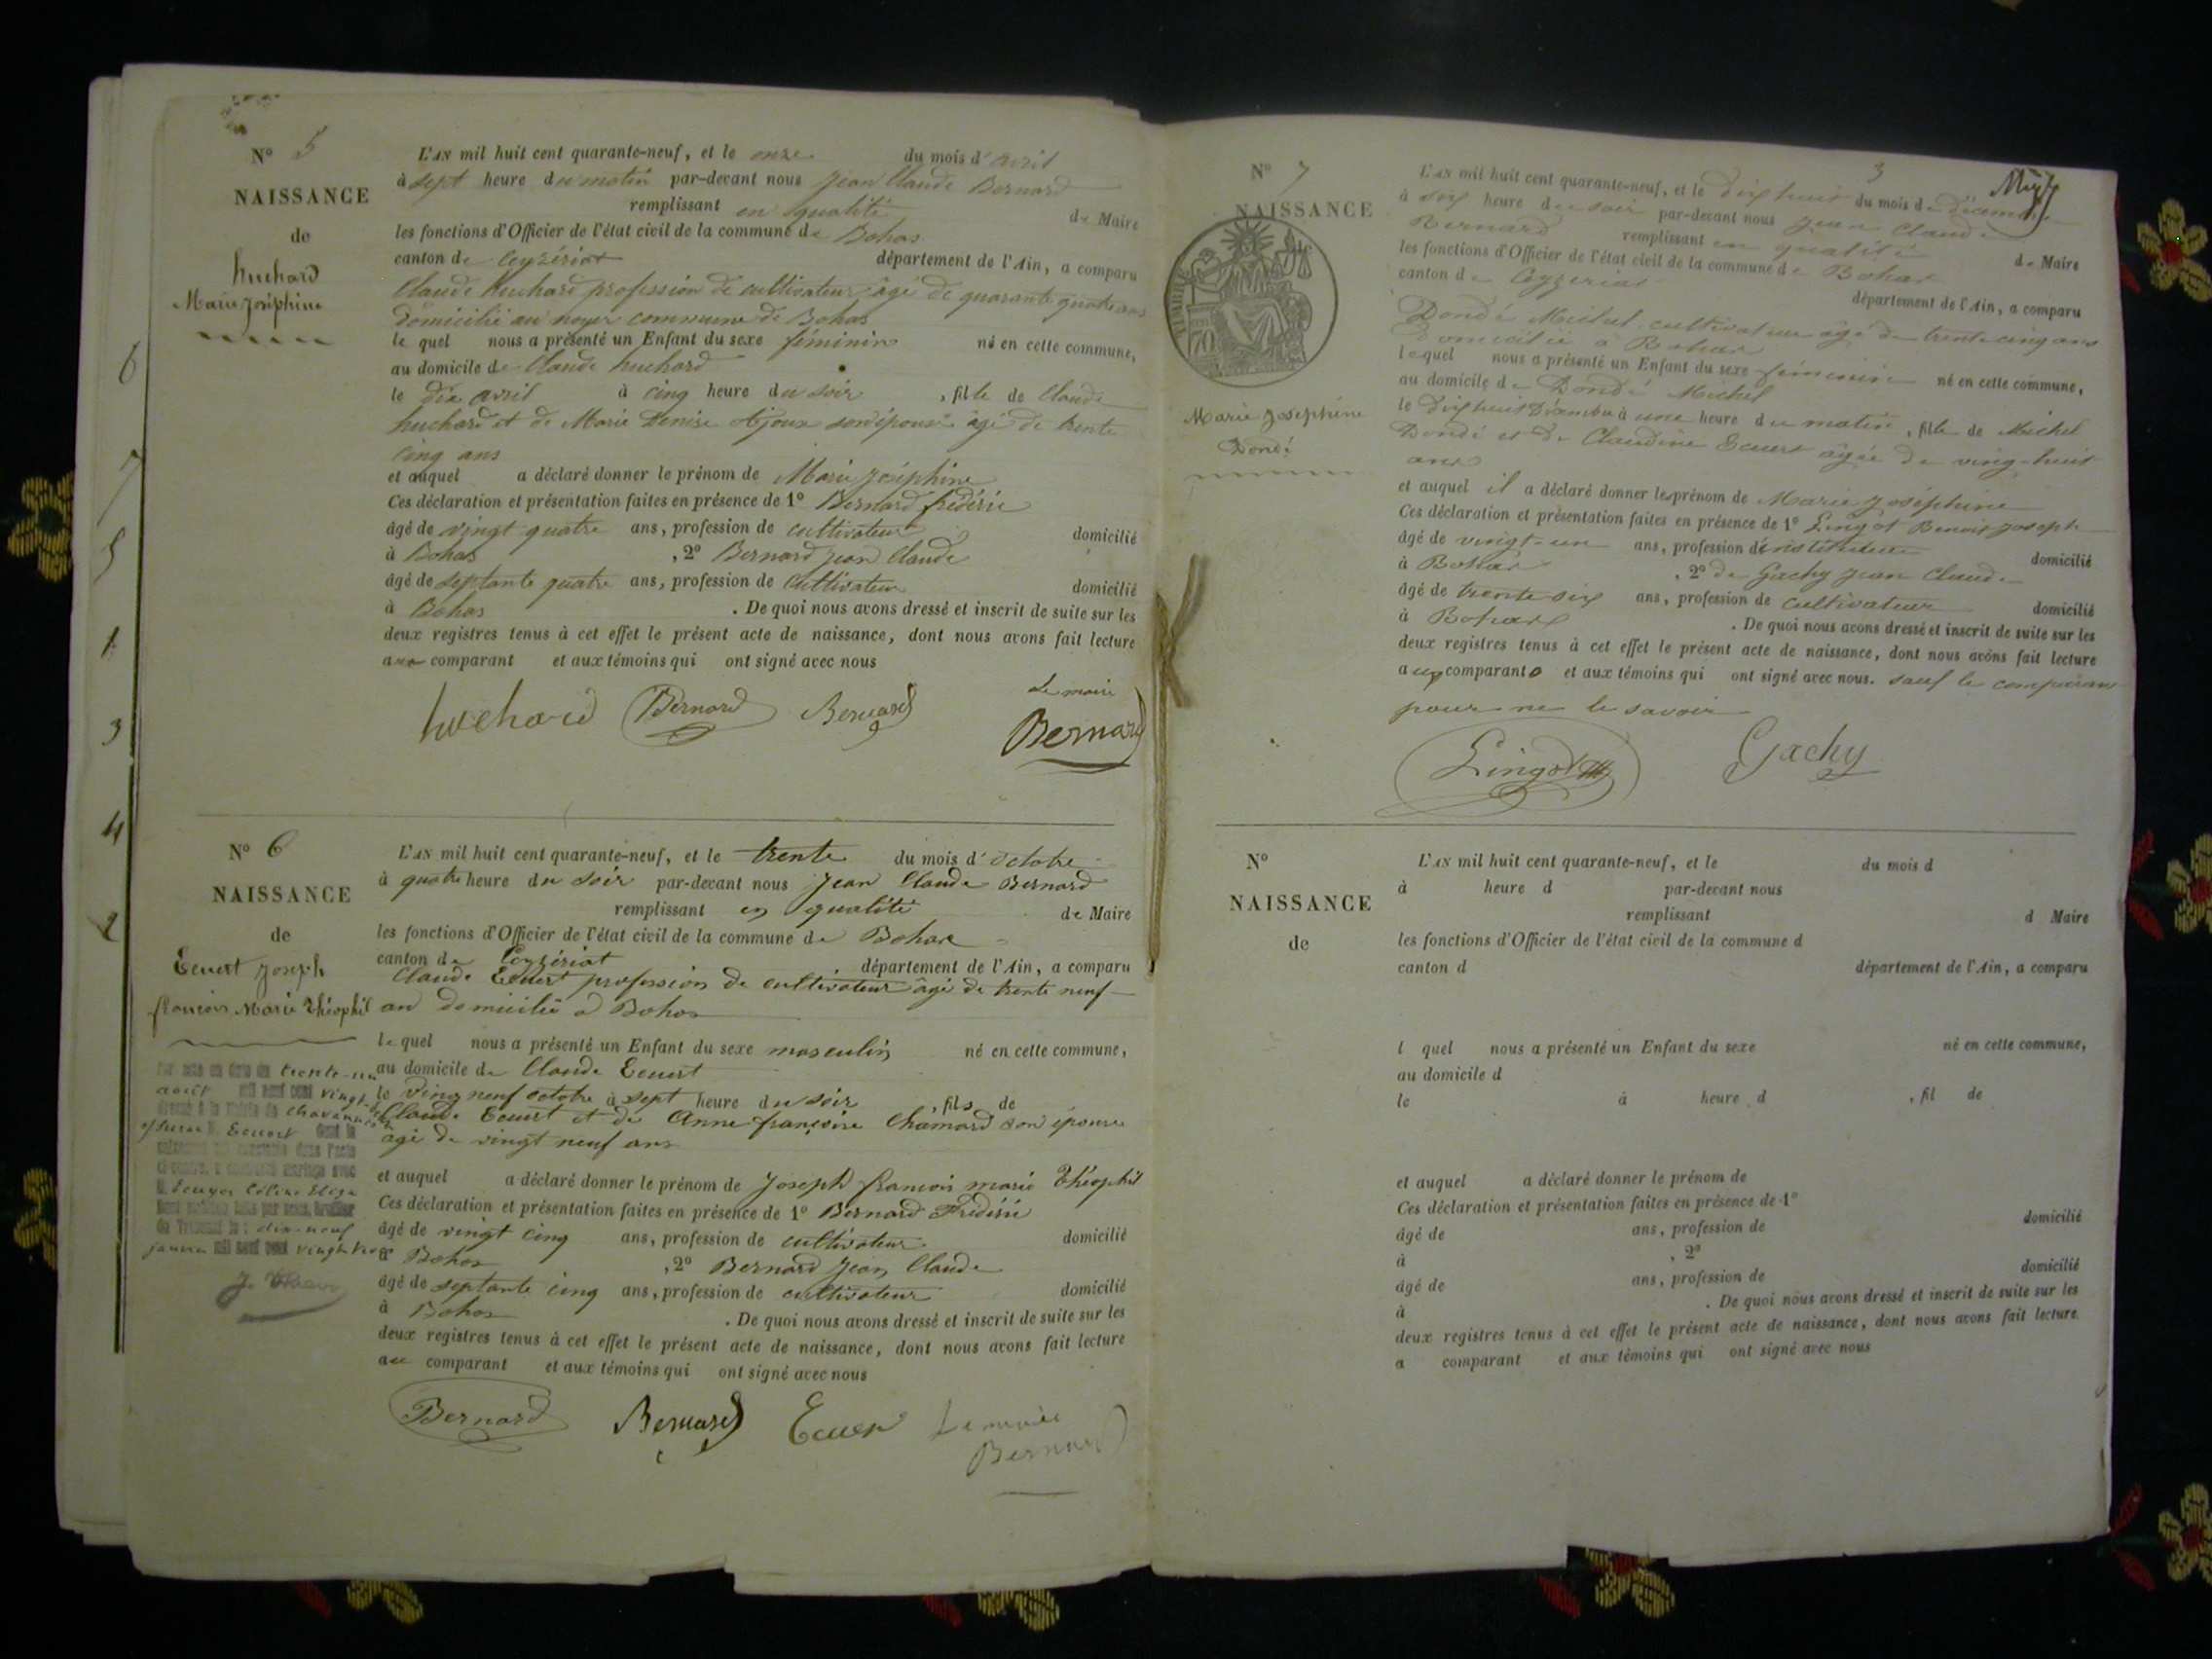 N° 5
NAISSANCE
de
huchard
Marie Joséphine
L'AN mil huit cent quarante-neuf, et le onze du mois d'avril
à sept heure du matin par-devant nous Jean Claude Bernard
remplissant en qualité de Maire
les fonctions d'Officier de l'état civil de la commune de Bohas
canton de Ceyzériat département de l'Ain, a comparu
Claude huchard profession de cultivateur agé de quarante quatre ans
domicilié au noyer commune de Bohas
le quel nous a présenté un Enfant du sexe féminin né en cette commune,
au domicile de Claude huchard
le dix avril à cinq heure du soir, fille de Claude
huchard et de Marie Denise son épouse agé de trente
cinq ans
et auquel a déclaré donner le prénom de Marie Joséphine
Ces déclaration et présentation faites en présence de 1° Bernard frédéric
âgé de vingt quatre ans, profession de cultivateur domicilié
à Bohas, 2° Bernard Jean Claude
âgé de septante quatre ans, profession de cultivateur domicilié
à Bohas. De quoi nous avons dressé et inscrit de suite sur les
deux registres tenus à cet effet le présent acte de naissance, dont nous avons fait lecture
au comparant et aux témoins qui ont signé avec nous
huchard Bernard Bernard Le maire
Bernard
6
7
5
1
3
4
2
N° 6
NAISSANCE
de
Ecuert Joseph
francois Marie Théophil
L'AN mil huit cent quarante-neuf, et le trente du mois d'octobre
à quatre heure du soir par-devant nous Jean Claude Bernard
remplissant en qualité de Maire
les fonctions d'Officier de l'état civil de la commune de Bohas
canton de Ceyzériat département de l'Ain, a comparu
Claude Ecuert profession de cultivateur âgé de trente neuf
an domicilié à Bohas
le quel nous a présenté un Enfant du sexe masculin né en cette commune,
au domicile de Claude Ecuert
le vingt neuf octobre à sept heure du soir, fils de
Claude Ecuert et de Anne françoise Chamard son épouse
agé de vingt neuf ans
et auquel a déclaré donner le prénom de Joseph francois marie Théophil
Ces déclaration et présentation faites en présence de 1° Bernard Frédéric
âgé de vingt cinq ans, profession de cultivateur domicilié
à Bohas, 2° Bernard Jean Claude
âgé de septante cinq ans, profession de cultivateur domicilié
à Bohas. De quoi nous avons dressé et inscrit de suite sur les
deux registres tenus à cet effet le présent acte de naissance, dont nous avons fait lecture
au comparant et aux témoins qui ont signé avec nous
Bernard Bernard Ecuer Le maire
Bernard
trente-un
août mil neuf cent vingt
Ecuert dont la
dans l'acte
ci-contre, a contracté mariage avec
Céline
dix-neuf
janvier mil neuf cent vingt
N° 7
NAISSANCE
de
TIMBRE
70
Marie Josephine
Dondé
3
L'AN mil huit cent quarante-neuf, et le dix huit du mois de décembre
à six heure du soir par-devant nous Jean Claude
Bernard remplissant en qualité de Maire
les fonctions d'Officier de l'état civil de la commune de Bohas
canton de Ceyzeriat département de l'Ain, a comparu
Dondé Michel cultivateur âgé de trente cinq ans
domicilié à Bohas
lequel nous a présenté un Enfant du sexe féminin né en cette commune,
au domicile de Dondé Michel
le dix huit à une heure du matin, fille de Michel
Dondé et de Claudine Ecuert âgée de ving-huit
ans
et auquel il a déclaré donner les prénom de Marie Joséphine
Ces déclaration et présentation faites en présence de 1° Lingot Benoit Joseph
âgé de vingt-un ans, profession d'instituteur domicilié
à Bohas, 2° de Gachy Jean Claude
âgé de trente six ans, profession de cultivateur domicilié
à Bohas. De quoi nous avons dressé et inscrit de suite sur les
deux registres tenus à cet effet le présent acte de naissance, dont nous avons fait lecture
aux comparant et aux témoins qui ont signé avec nous. sauf le comparant
pour ne le savoir
Lingot Gachy
N°
NAISSANCE
de
L'AN mil huit cent quarante-neuf, et le du mois d
à heure d par-devant nous
remplissant d Maire
les fonctions d'Officier de l'état civil de la commune d
canton d département de l'Ain, a comparu
l quel nous a présenté un Enfant du sexe né en cette commune,
au domicile d
le à heure d, fil de
et auquel a déclaré donner le prénom de
Ces déclaration et présentation faites en présence de 1°
âgé de ans, profession de domicilié
à, 2°
âgé de ans, profession de domicilié
à. De quoi nous avons dressé et inscrit de suite sur les
deux registres tenus à cet effet le présent acte de naissance, dont nous avons fait lecture
a comparant et aux témoins qui ont signé avec nous